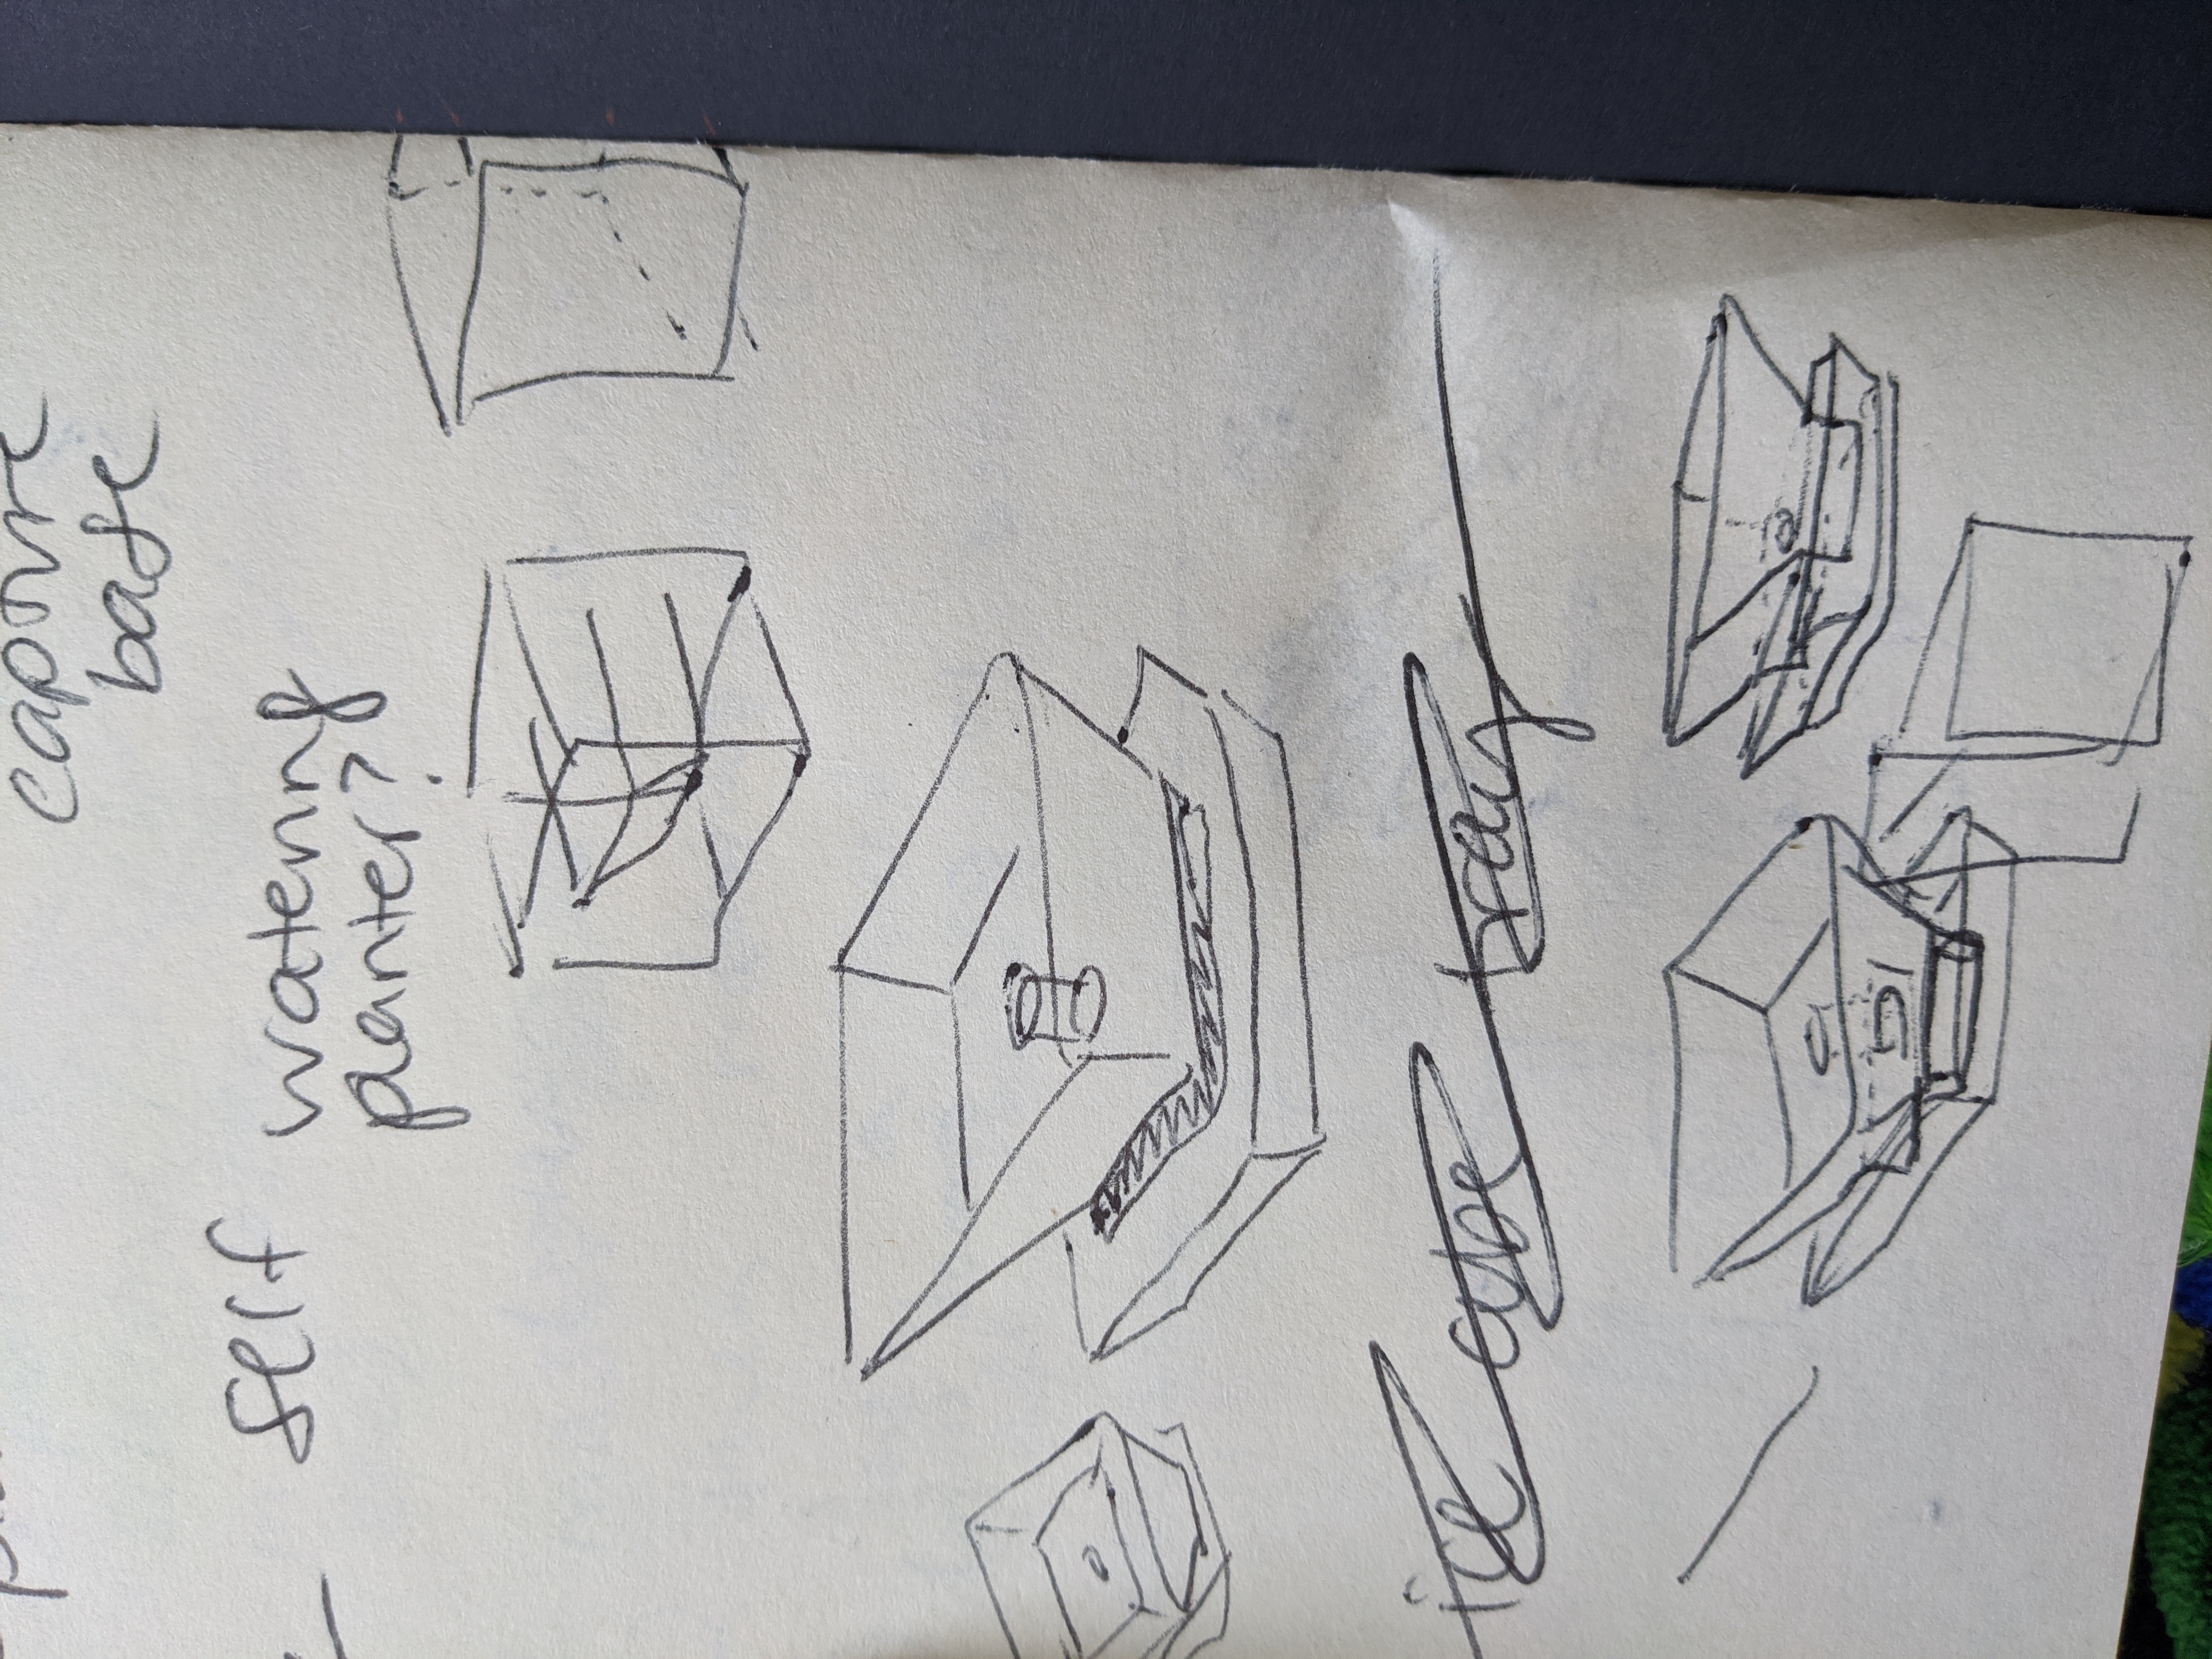 capture
base
self watering
planter?
ice cube tray